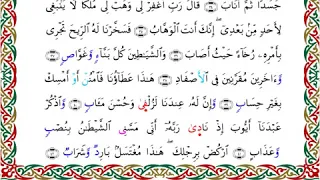 جَسَدًا ثُمَّ أَنَابَ ۝ قَالَ رَبِّ ٱغْفِرْ لِى وَهَبْ لِى مُلْكًا لَّا يَنۢبَغِى
لِأَحَدٍ مِّنۢ بَعْدِىٓ ۖ إِنَّكَ أَنتَ ٱلْوَهَّابُ ۝ فَسَخَّرْنَا لَهُ ٱلرِّيحَ تَجْرِى
بِأَمْرِهِۦ رُخَآءً حَيْثُ أَصَابَ ۝ وَٱلشَّيَـٰطِينَ كُلَّ بَنَّآءٍ وَغَوَّاصٍ ۝
وَءَاخَرِينَ مُقَرَّنِينَ فِى ٱلْأَصْفَادِ ۝ هَـٰذَا عَطَآؤُنَا فَٱمْنُنْ أَوْ أَمْسِكْ
بِغَيْرِ حِسَابٍ ۝ وَإِنَّ لَهُۥ عِندَنَا لَزُلْفَىٰ وَحُسْنَ مَـَٔابٍ ۝ وَٱذْكُرْ
عَبْدَنَآ أَيُّوبَ إِذْ نَادَىٰ رَبَّهُۥٓ أَنِّى مَسَّنِىَ ٱلشَّيْطَـٰنُ بِنُصْبٍ
وَعَذَابٍ ۝ ٱرْكُضْ بِرِجْلِكَ ۖ هَـٰذَا مُغْتَسَلٌۢ بَارِدٌ وَشَرَابٌ ۝